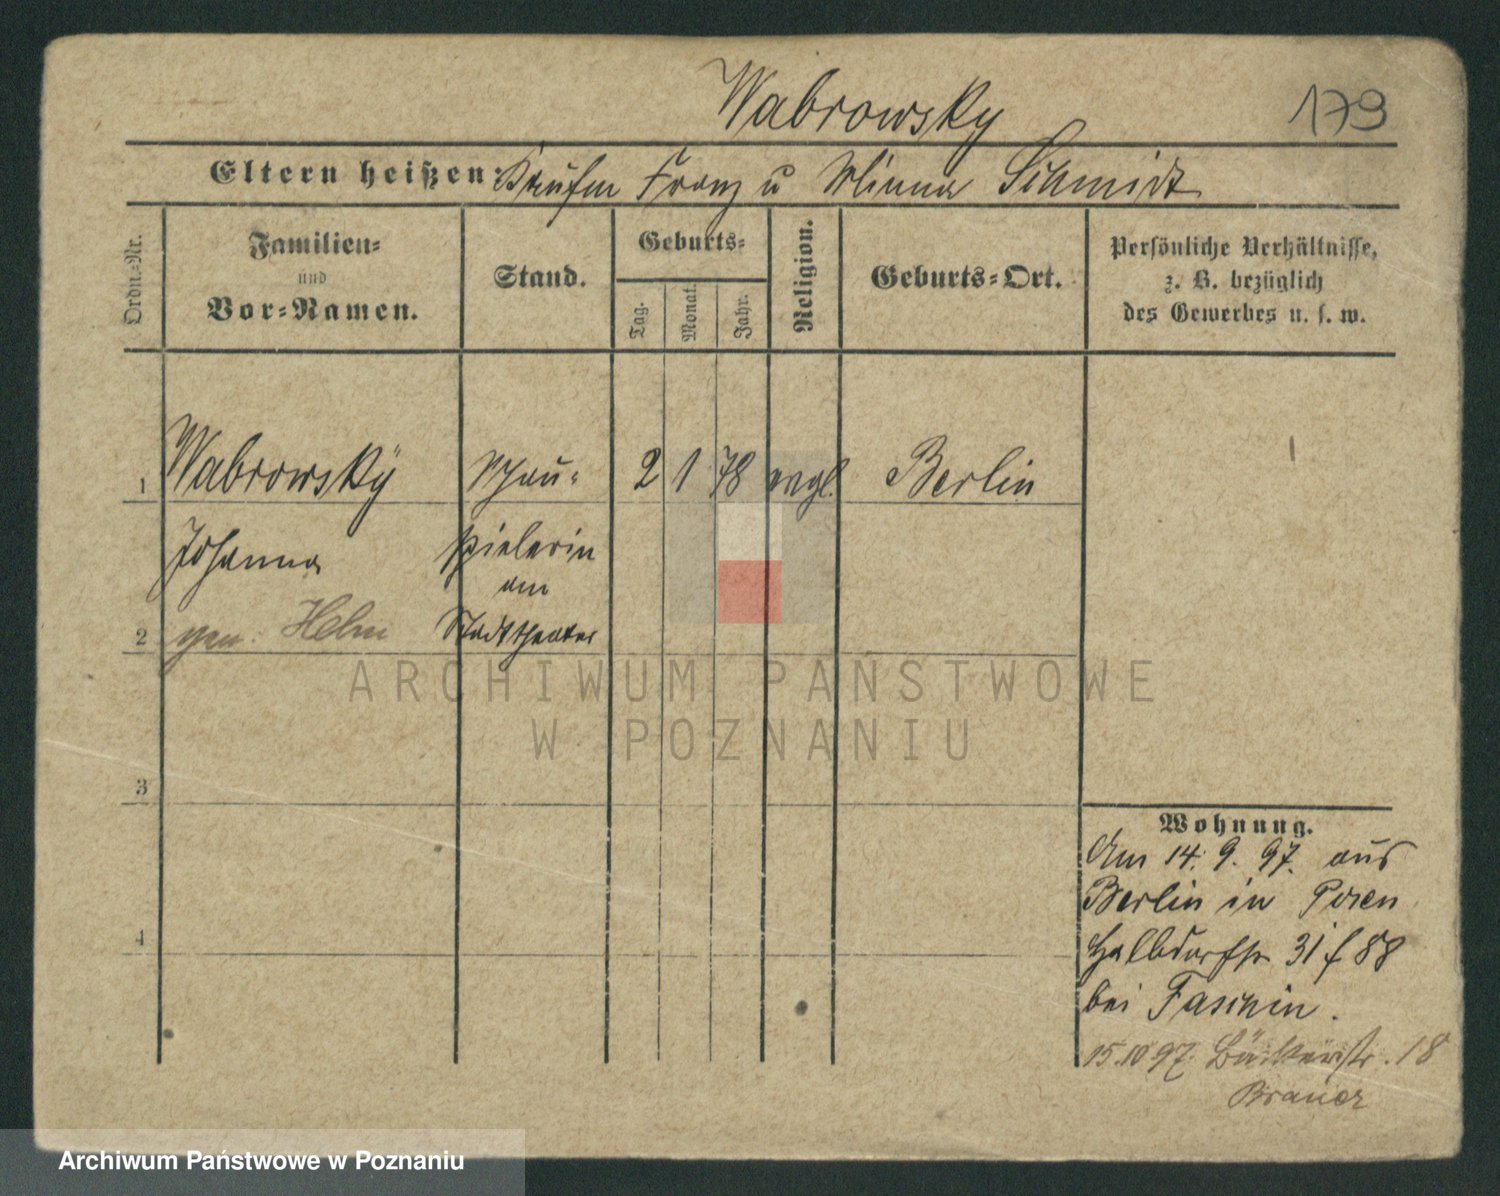 Wabrowsky
179
Eltern heißen: Kaufm Franz u Minna Schmidt
Ordn.-Nr.
Familien-
und
Vor-Namen.
Stand.
Geburts-
Tag.
Monat.
Jahr.
Religion.
Geburts-Ort.
Persönliche Verhältnisse,
z. B. bezüglich
des Gewerbes u. s. w.
1 Wabrowsky Schau- 2 1 78 evgl. Berlin
Johanna spielerin
am
2 gen. Helm Stadttheater
3
4
Wohnung.
Am 14. 9. 97. aus
Berlin in Posen
Halbdorfstr 31 f 88
bei Faschin.
15.10 97. Bäckerstr. 18
Brauer
ARCHIWUM PAŃSTWOWE
W POZNANIU
Archiwum Państwowe w Poznaniu